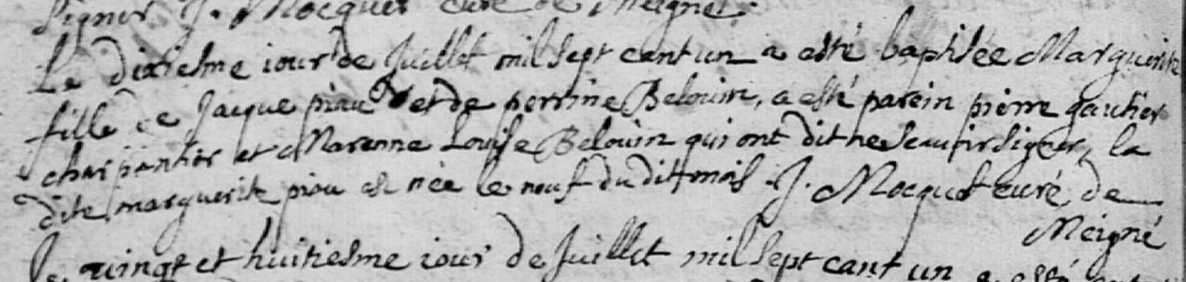 signer J. Mocquet curé de Meigné.
Le dixiesme iour de Juillet mil sept cent un a esté baptisée Marguerite
fille de Jacque piau et de perrine Belouin, a esté parein pierre gautier
charpentier et Marenne Louise Belouin qui ont dit ne scavoir signer, la
dite marguerite piau est née le neuf du dit mois J. Mocquet curé de
Meigné
Le vingt et huitiesme iour de Juillet mil sept cant un a esté